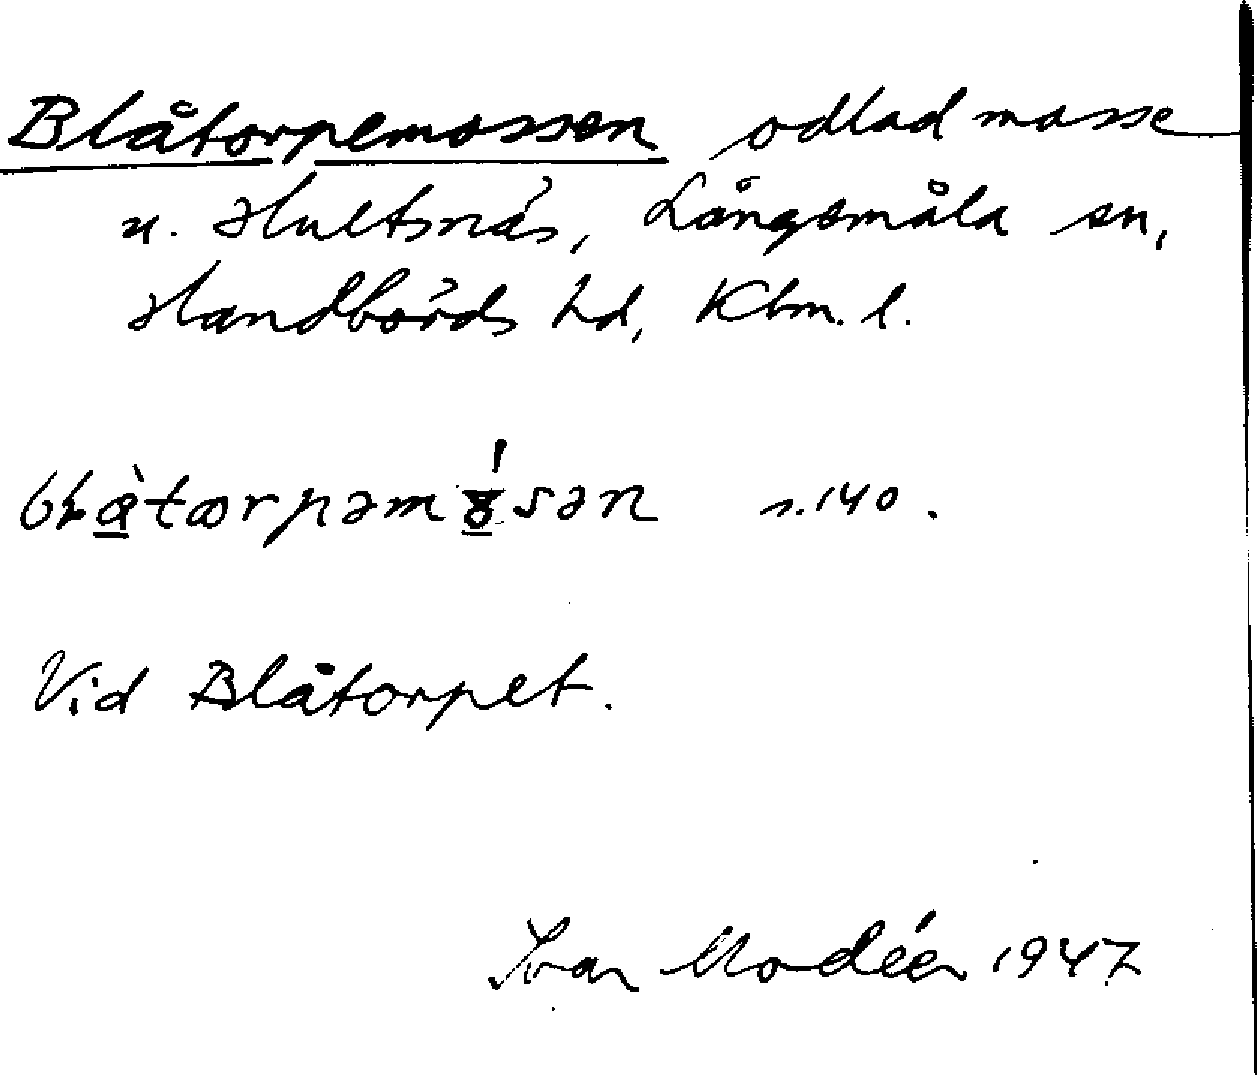 Blåtorpemossen, odlad mosse
u. Hultsnäs, Långemåla sn,
Handbörds hd, Klm. l.
s. 140.
Vid Blåtorpet.
Ivar Modéer 1947